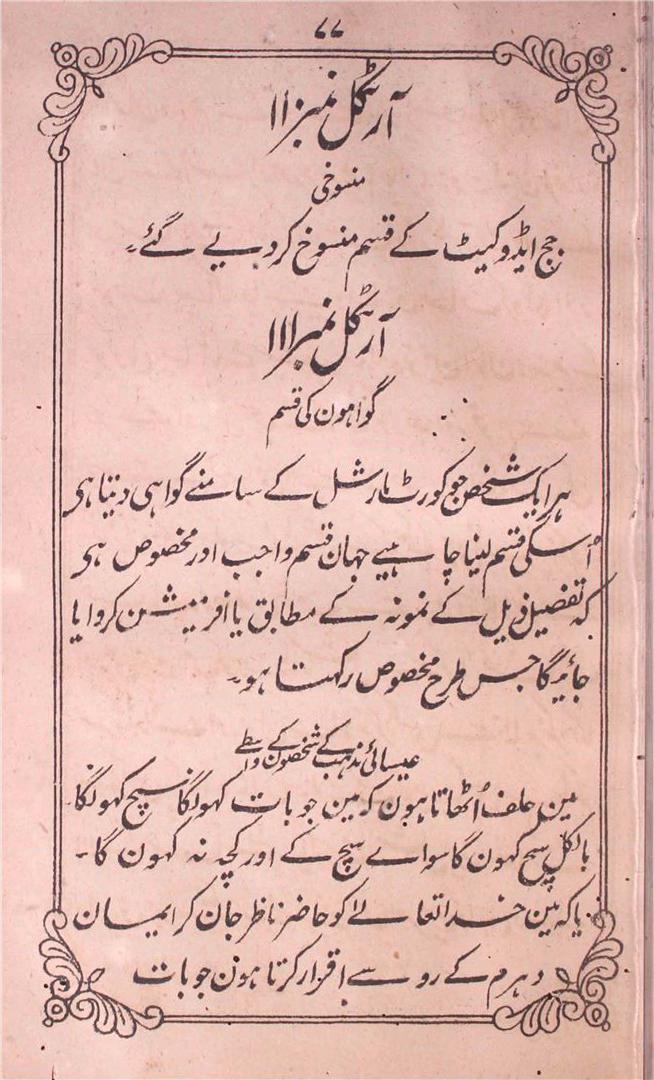 ۷۷
آرٹکل نمبر ۱۱۰
منسوخی
جج ایڈوکیٹ کے قسم منسوخ کردیے گئے۔
آرٹکل نمبر ۱۱۱
گواہون کی قسم
ہر ایک شخص جو کورٹ مارشل کے سامنے گواہی دیتا ہی
اُسکی قسم لینا چاہیے جہان قسم واجب اور مخصوص ہی
کہ تفصیل ذیل کے نمونہ کے مطابق یا افرمیشن کروایا
جائیگا جس طرح مخصوص رکھتا ہو۔
عیسائی مذہب کے شخصون کے واسطے
مین حلف اُٹھاتا ہون کہ مین جو بات کہونگا سچ کہونگا۔
بالکل سچ کہون گا سوا اے سچ کے اور کچہ نہ کہون گا۔
یا کہ مین خدا تعالےٰ کو حاضر ناظر جان کر ایمان
دہرم کے رو سے اقرار کرتا ہون جو بات